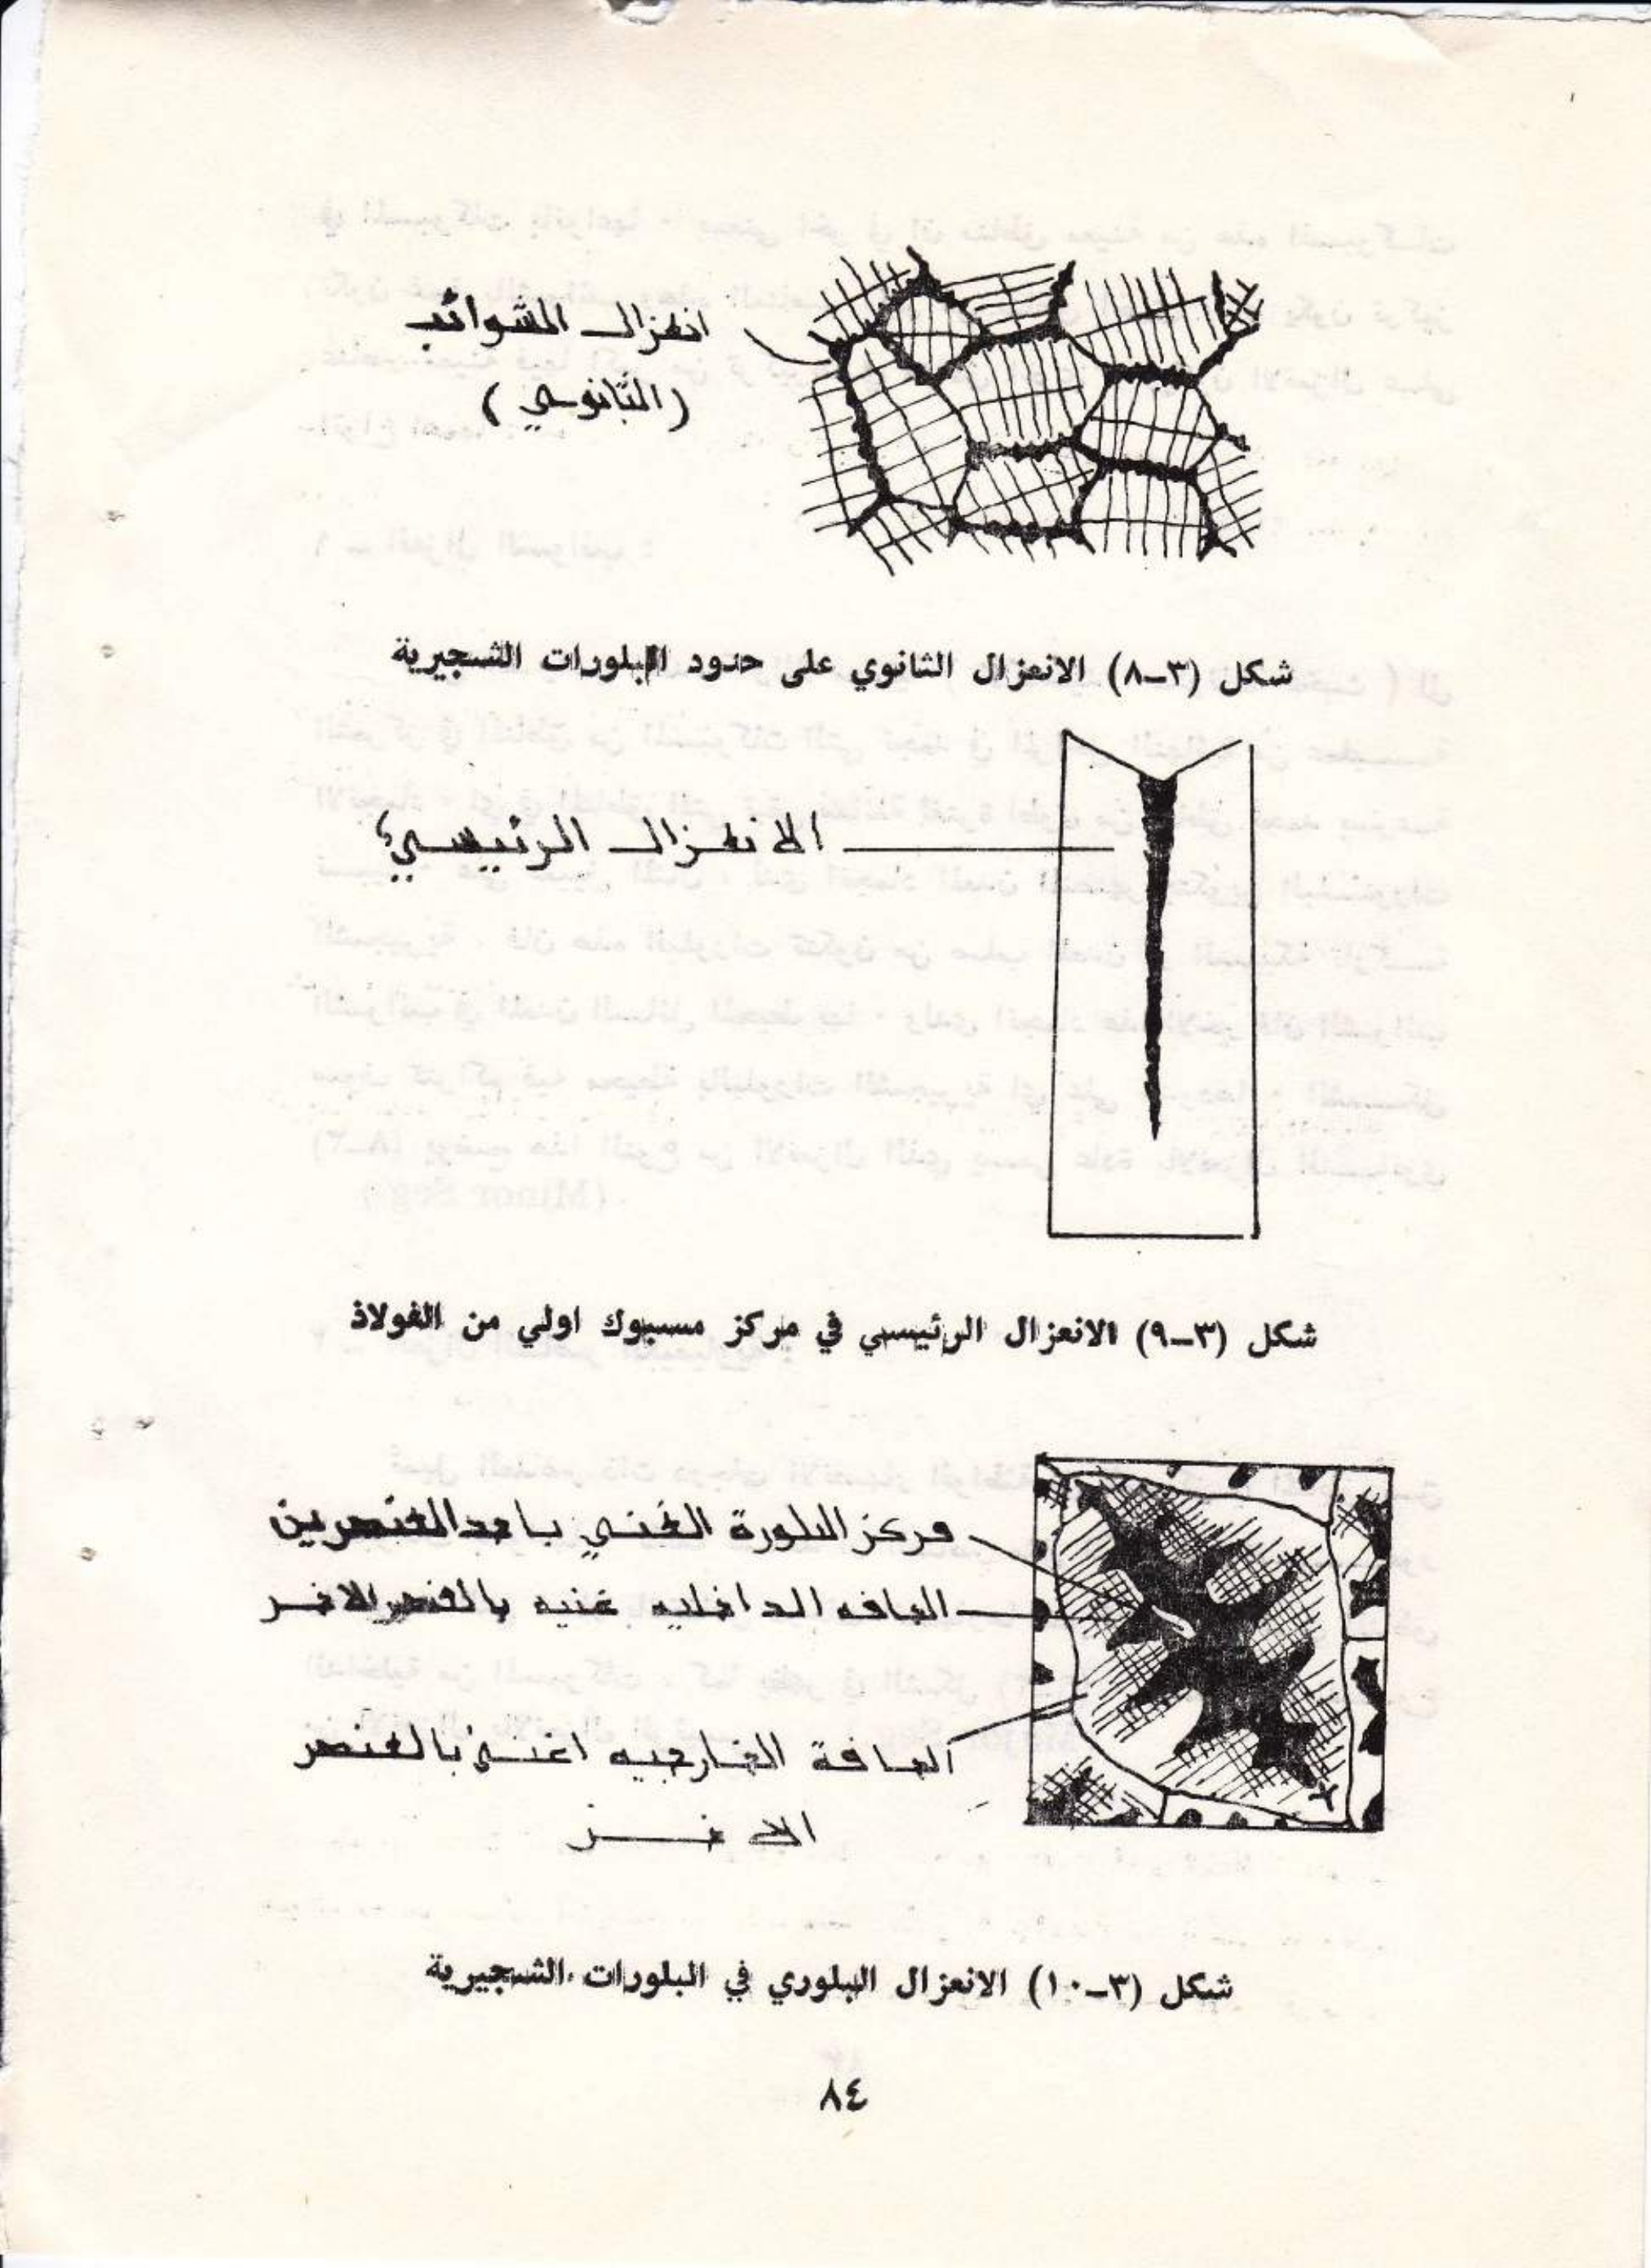 انعزال الشوائب
(الثانوي)
شكل (٣-٨) الانعزال الثانوي على حدود البلورات الشجيرية
الانعزال الرئيسي
شكل (٣-٩) الانعزال الرئيسي في مركز مسبوك اولي من الفولاذ
مركز البلورة الغني باحد العنصرين
الحافه الداخليه غنيه بالعنصر الاخر
الحافة الخارجيه اغنى بالعنصر
الاخر
شكل (٣-١٠) الانعزال البلوري في البلورات الشجيرية
٨٤